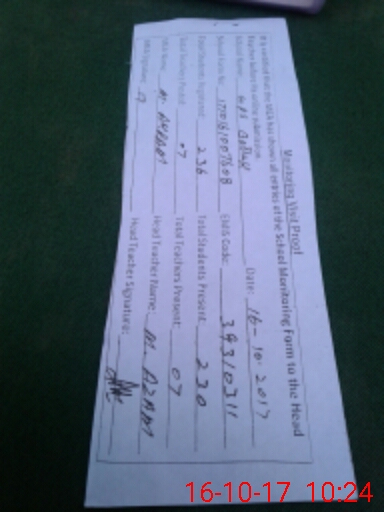 Monitoring Visit Proof
It is certified that the MEA has shown all entries of the School Monitoring Form to the Head
Teacher before its online submission.
School Name: GPS Date: 16-10-2017
School Form No: EMIS Code: 39310311
Total Students Registered: 236 Total Students Present: 230
Total Teachers Posted: 07 Total Teachers Present: 07
MEA Name: M. AKRAM Head Teacher Name: M. AZAM
MEA Signature: Head Teacher Signature:
16-10-17 10:24